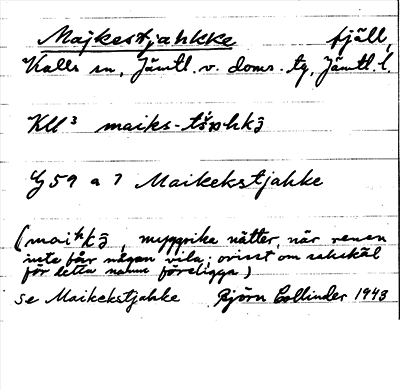 Majkestjahkke fjäll,
Kalls sn, Jämtl. v. doms. tg, Jämtl. l.
KU³ maiks-tšɒhkɜ
G 59 a 7 Maikekstjahke
(maiʰkɜ, myggrika nätter, när renen
inte får någon vila; ovisst om sakskäl
för detta namn föreligga)
se Maikekstjahke Björn Collinder 1943